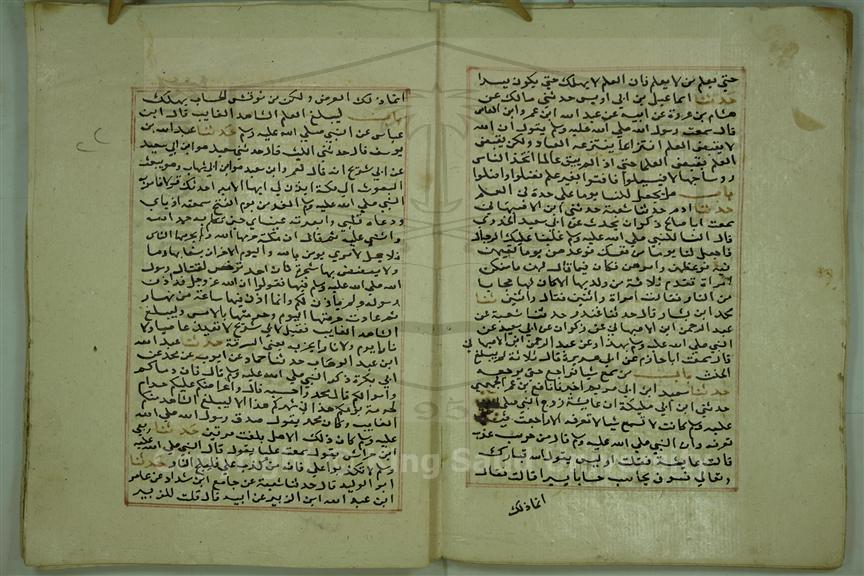 حتي يعلم من لا يعلم فان العلم لا يهلك حتي يكون سرا
حدثنا اسماعيل بن ابي اويس حدثني مالك عن
هشام بن عروة عن ابيه عن عبد الله ابن عمرو ابن العاص
قال سمعت رسول الله صلي الله عليه وسلم يقول ان الله
لا يقبض العلم انتزاعا ينتزعه العباد ولكن يقبض
العلم بقبض العلما حتي اذا لم يبق عالما اتخذ الناس
روسا جهالا فسيلوا فافتوا بغير علم فضلوا واضلوا
باب هل يجعل للنسا يوما علي حدة في العلم
حدثنا ادم حدثنا شعبة حدثني ابن الاصبهاني
سمعت ابا صالح ذكوان يحدث عن ابي سعيد الخدري
قال النسا للنبي صلي الله عليه وسلم غلبنا عليك الرجال
فاجعل لنا يوما من نفسك فوعدهن يوما لقيهن
فيه فوعظهن وامرهن فكان فيما قال لهن ما منكن
امراة تقدم ثلاثة من ولدها الا كان لها حجابا
من النار فقالت امراة واثنين فقال واثنين ثنا
محمد ابن بشار قال حدثنا غندر حدثنا شعبة عن
عبد الرحمن ابن الاصبهاني عن ذكوان عن ابي سعيد عن
النبي صلي الله عليه وسلم بهذا وعن عبد الرحمن ابن الاصبهاني
قال سمعت ابا حازم عن ابي هريرة قال ثلاثة لم يبلغوا
الحنث باب من سمع شيا فراجع حتي يعرفه
حدثنا سعيد ابن ابي مريم اخبرنا نافع بن عمر الجمحي
حدثني ابن ابي مليكة ان عايشة زوج النبي صلي الله
عليه وسلم كانت لا تسمع شيا لا تعرفه الا راجعت فيه حتي
تعرفه وان النبي صلي الله عليه وسلم قال من حوسب عذب
قالت عايشة فقلت اوليس يقول الله تبارك
وتعالي فسوف يحاسب حسابا يسيرا قالت فقال
انما ذلك
انما ذلك العرض ولكن من نوقش الحساب يهلك
باب ليبلغ العلم الشاهد الغايب قاله ابن
عباس عن النبي صلي الله عليه وسلم حدثنا عبد الله بن
يوسف قال حدثني الليث قال حدثني سعيد هو ابن ابي سعيد
عن ابي شريح انه قال لعمرو ابن سعيد وهو يبعث
البعوث الي مكة ايذن لي ايها الامير احدثك قولا قام به
النبي صلي الله عليه وسلم الغد من يوم الفتح سمعته اذناي
ووعاه قلبي وابصرته عيناي حين تكلم به حمد الله
واثني عليه ثم قال ان مكة حرمها الله ولم يحرمها الناس
فلا يحل لامري يومن بالله واليوم الاخر ان يسفك بها دما
ولا يعضد بها شجرة فان احد ترخص لقتال رسول
الله صلي الله عليه وسلم فيها فقولوا ان الله عز وجل قد اذن
لرسوله ولم ياذن لكم وانما اذن فيها ساعة من نهار
ثم عادت حرمتها اليوم كحرمتها بالامس وليبلغ
الشاهد الغايب فقيل لابي شريح لا تعيذ عاصيا ولا
فارا بدم ولا فارا بخربة يعني السرقة حدثنا عبد الله
ابن عبد الوهاب حدثنا حماد عن ايوب عن محمد عن
ابي بكرة ذكر النبي صلي الله عليه وسلم قال فان دماكم
واموالكم قال محمد واحسبه قال واعراضكم عليكم حرام
كحرمة يومكم هذا في شهركم هذا الا ليبلغ الشاهد منكم
الغايب وكان محمد يقول صدق رسول الله صلي الله
عليه وسلم كان ذلك الا هل بلغت مرتين
ابن حراش يقول سمعت عليا يقول قال النبي صلي الله عليه
وسلم لا تكذبوا علي فانه من كذب علي فليلج النار حدثنا
ابو الوليد قال حدثنا شعبة عن جامع ابن شداد عن عامر
ابن عبد الله ابن الزبير عن ابيه قال قلت للزبير